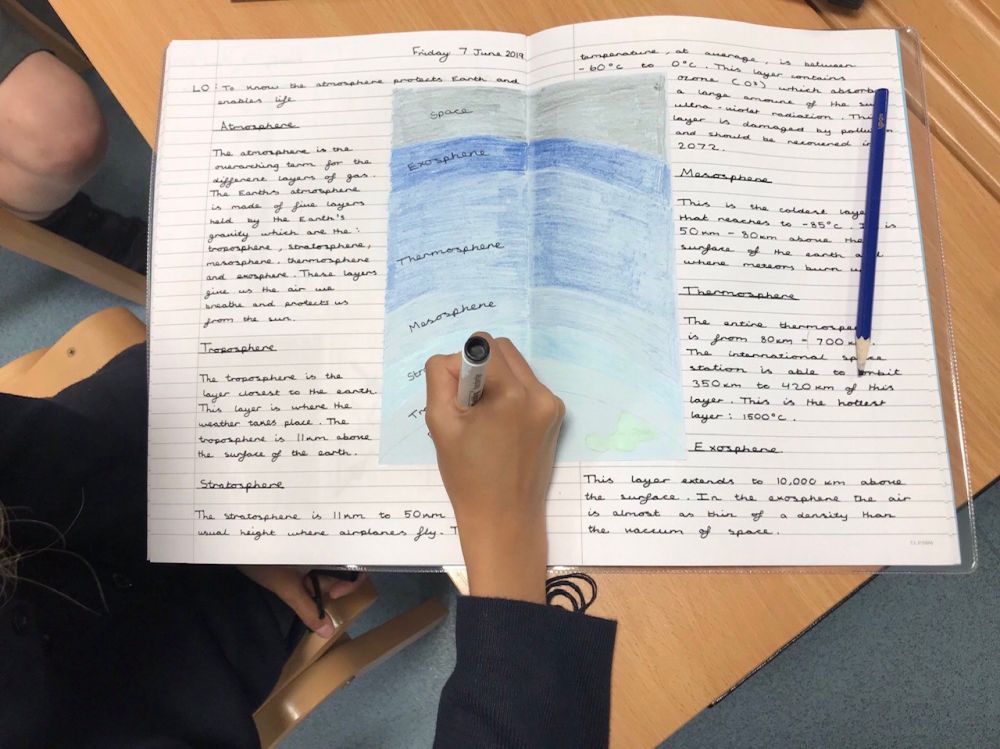 Friday 7 June 2019
LO: To know the atmosphere protects Earth and
enables life
Atmosphere
The atmosphere is the
overarching term for the
different layers of gas.
The Earths atmosphere
is made of five layers
held by the Earth's
gravity which are the:
troposphere, stratosphere,
mesosphere, thermosphere
and exosphere. These layers
give us the air we
breathe and protects us
from the sun.
Troposphere
The troposphere is the
layer closest to the earth.
This layer is where the
weather takes place. The
troposphere is 11km above
the surface of the earth.
Stratosphere
The stratosphere is 11km to 50km
usual height where airplanes fly.
Space
Exosphere
Thermosphere
Mesosphere
temperature, at average, is between
-60°c to 0°c. This layer contains
ozone (O³) which absorbs
a large amount of the
ultra-violet radiation.
layer is damaged by
and should be recovered in
2072.
Mesosphere
This is the coldest
that reaches to -85°c. is
50km - 80km above the
surface of the earth and
where meteors burn
Thermosphere
The entire
is from 80km - 700
The international space
station is able to orbit
350km to 420km of this
layer. This is the hottest
layer: 1500°c.
Exosphere
This layer extends to 10,000 km above
the surface. In the exosphere the air
is almost as thin of a density than
the vaccum of space.